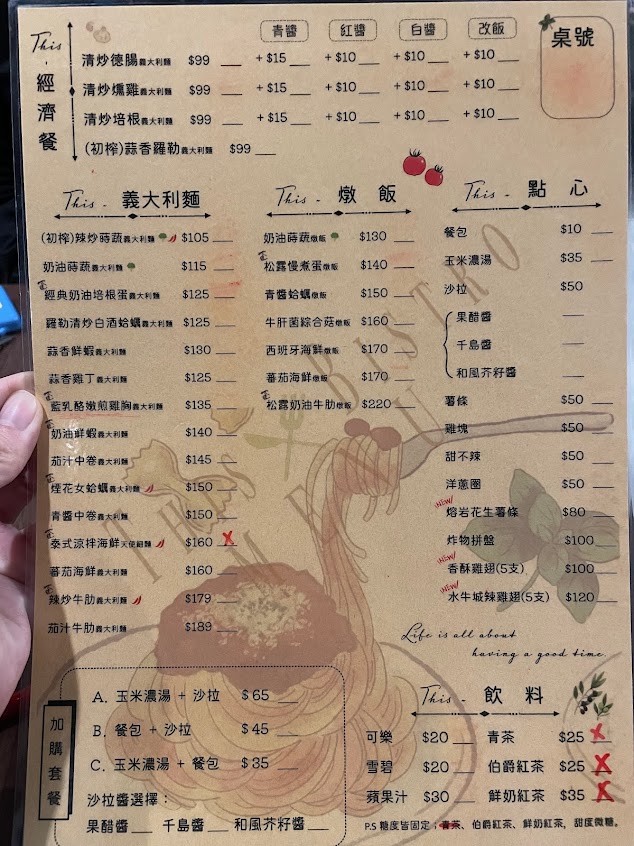 This - 經濟餐
青醬 紅醬 白醬 改飯
桌號
清炒德腸義大利麵 $99 ___ + $15 ___ + $10 ___ + $10 ___ + $10 ___
清炒燻雞義大利麵 $99 ___ + $15 ___ + $10 ___ + $10 ___ + $10 ___
清炒培根義大利麵 $99 ___ + $15 ___ + $10 ___ + $10 ___ + $10 ___
(初榨)蒜香羅勒義大利麵 $99 ___
This - 義大利麵
(初榨)辣炒蒔蔬義大利麵 $105 ___
奶油蒔蔬義大利麵 $115 ___
經典奶油培根蛋義大利麵 $125 ___
羅勒清炒白酒蛤蠣義大利麵 $125 ___
蒜香鮮蝦義大利麵 $130 ___
蒜香雞丁義大利麵 $125 ___
藍乳酪嫩煎雞胸義大利麵 $135 ___
奶油鮮蝦義大利麵 $140 ___
茄汁中卷義大利麵 $145 ___
煙花女蛤蠣義大利麵 $150 ___
青醬中卷義大利麵 $150 ___
泰式涼拌海鮮天使細麵 $160 X
蕃茄海鮮義大利麵 $160 ___
辣炒牛肋義大利麵 $179 ___
茄汁牛肋義大利麵 $189 ___
This - 燉飯
奶油蒔蔬燉飯 $130 ___
松露慢煮蛋燉飯 $140 ___
青醬蛤蠣燉飯 $150 ___
牛肝菌綜合菇燉飯 $160 ___
西班牙海鮮燉飯 $170 ___
蕃茄海鮮燉飯 $170 ___
松露奶油牛肋燉飯 $220 ___
This - 點心
餐包 $10 ___
玉米濃湯 $35 ___
沙拉 $50
果醋醬 ___
千島醬 ___
和風芥籽醬 ___
薯條 $50 ___
雞塊 $50 ___
甜不辣 $50 ___
洋蔥圈 $50 ___
NEW 熔岩花生薯條 $80 ___
炸物拼盤 $100 ___
NEW 香酥雞翅(5支) $100 ___
NEW 水牛城辣雞翅(5支) $120 ___
THIS BISTRO
MENU
Life is all about
having a good time.
加購套餐
A. 玉米濃湯 + 沙拉 $65 ___
B. 餐包 + 沙拉 $45 ___
C. 玉米濃湯 + 餐包 $35 ___
沙拉醬選擇：
果醋醬 ___ 千島醬 ___ 和風芥籽醬 ___
This - 飲料
可樂 $20 ___ 青茶 $25 X
雪碧 $20 ___ 伯爵紅茶 $25 X
蘋果汁 $30 ___ 鮮奶紅茶 $35 X
P.S 糖度皆固定；青茶、伯爵紅茶、鮮奶紅茶, 甜度微糖。